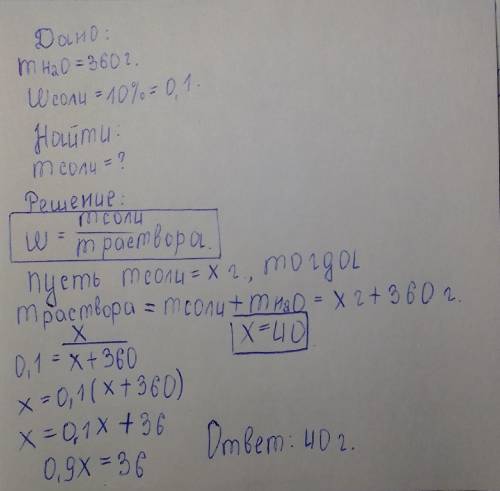 Дано:
m H₂O = 360 г.
W соли = 10% = 0,1.
Найти:
m соли = ?
Решение:
W = m соли / m раствора.
Пусть m соли = x г., тогда
m раствора = m соли + m H₂O = x г + 360 г.
0,1 = x / x + 360
x = 40
x = 0,1(x + 360)
x = 0,1x + 36
0,9x = 36
Ответ: 40 г.